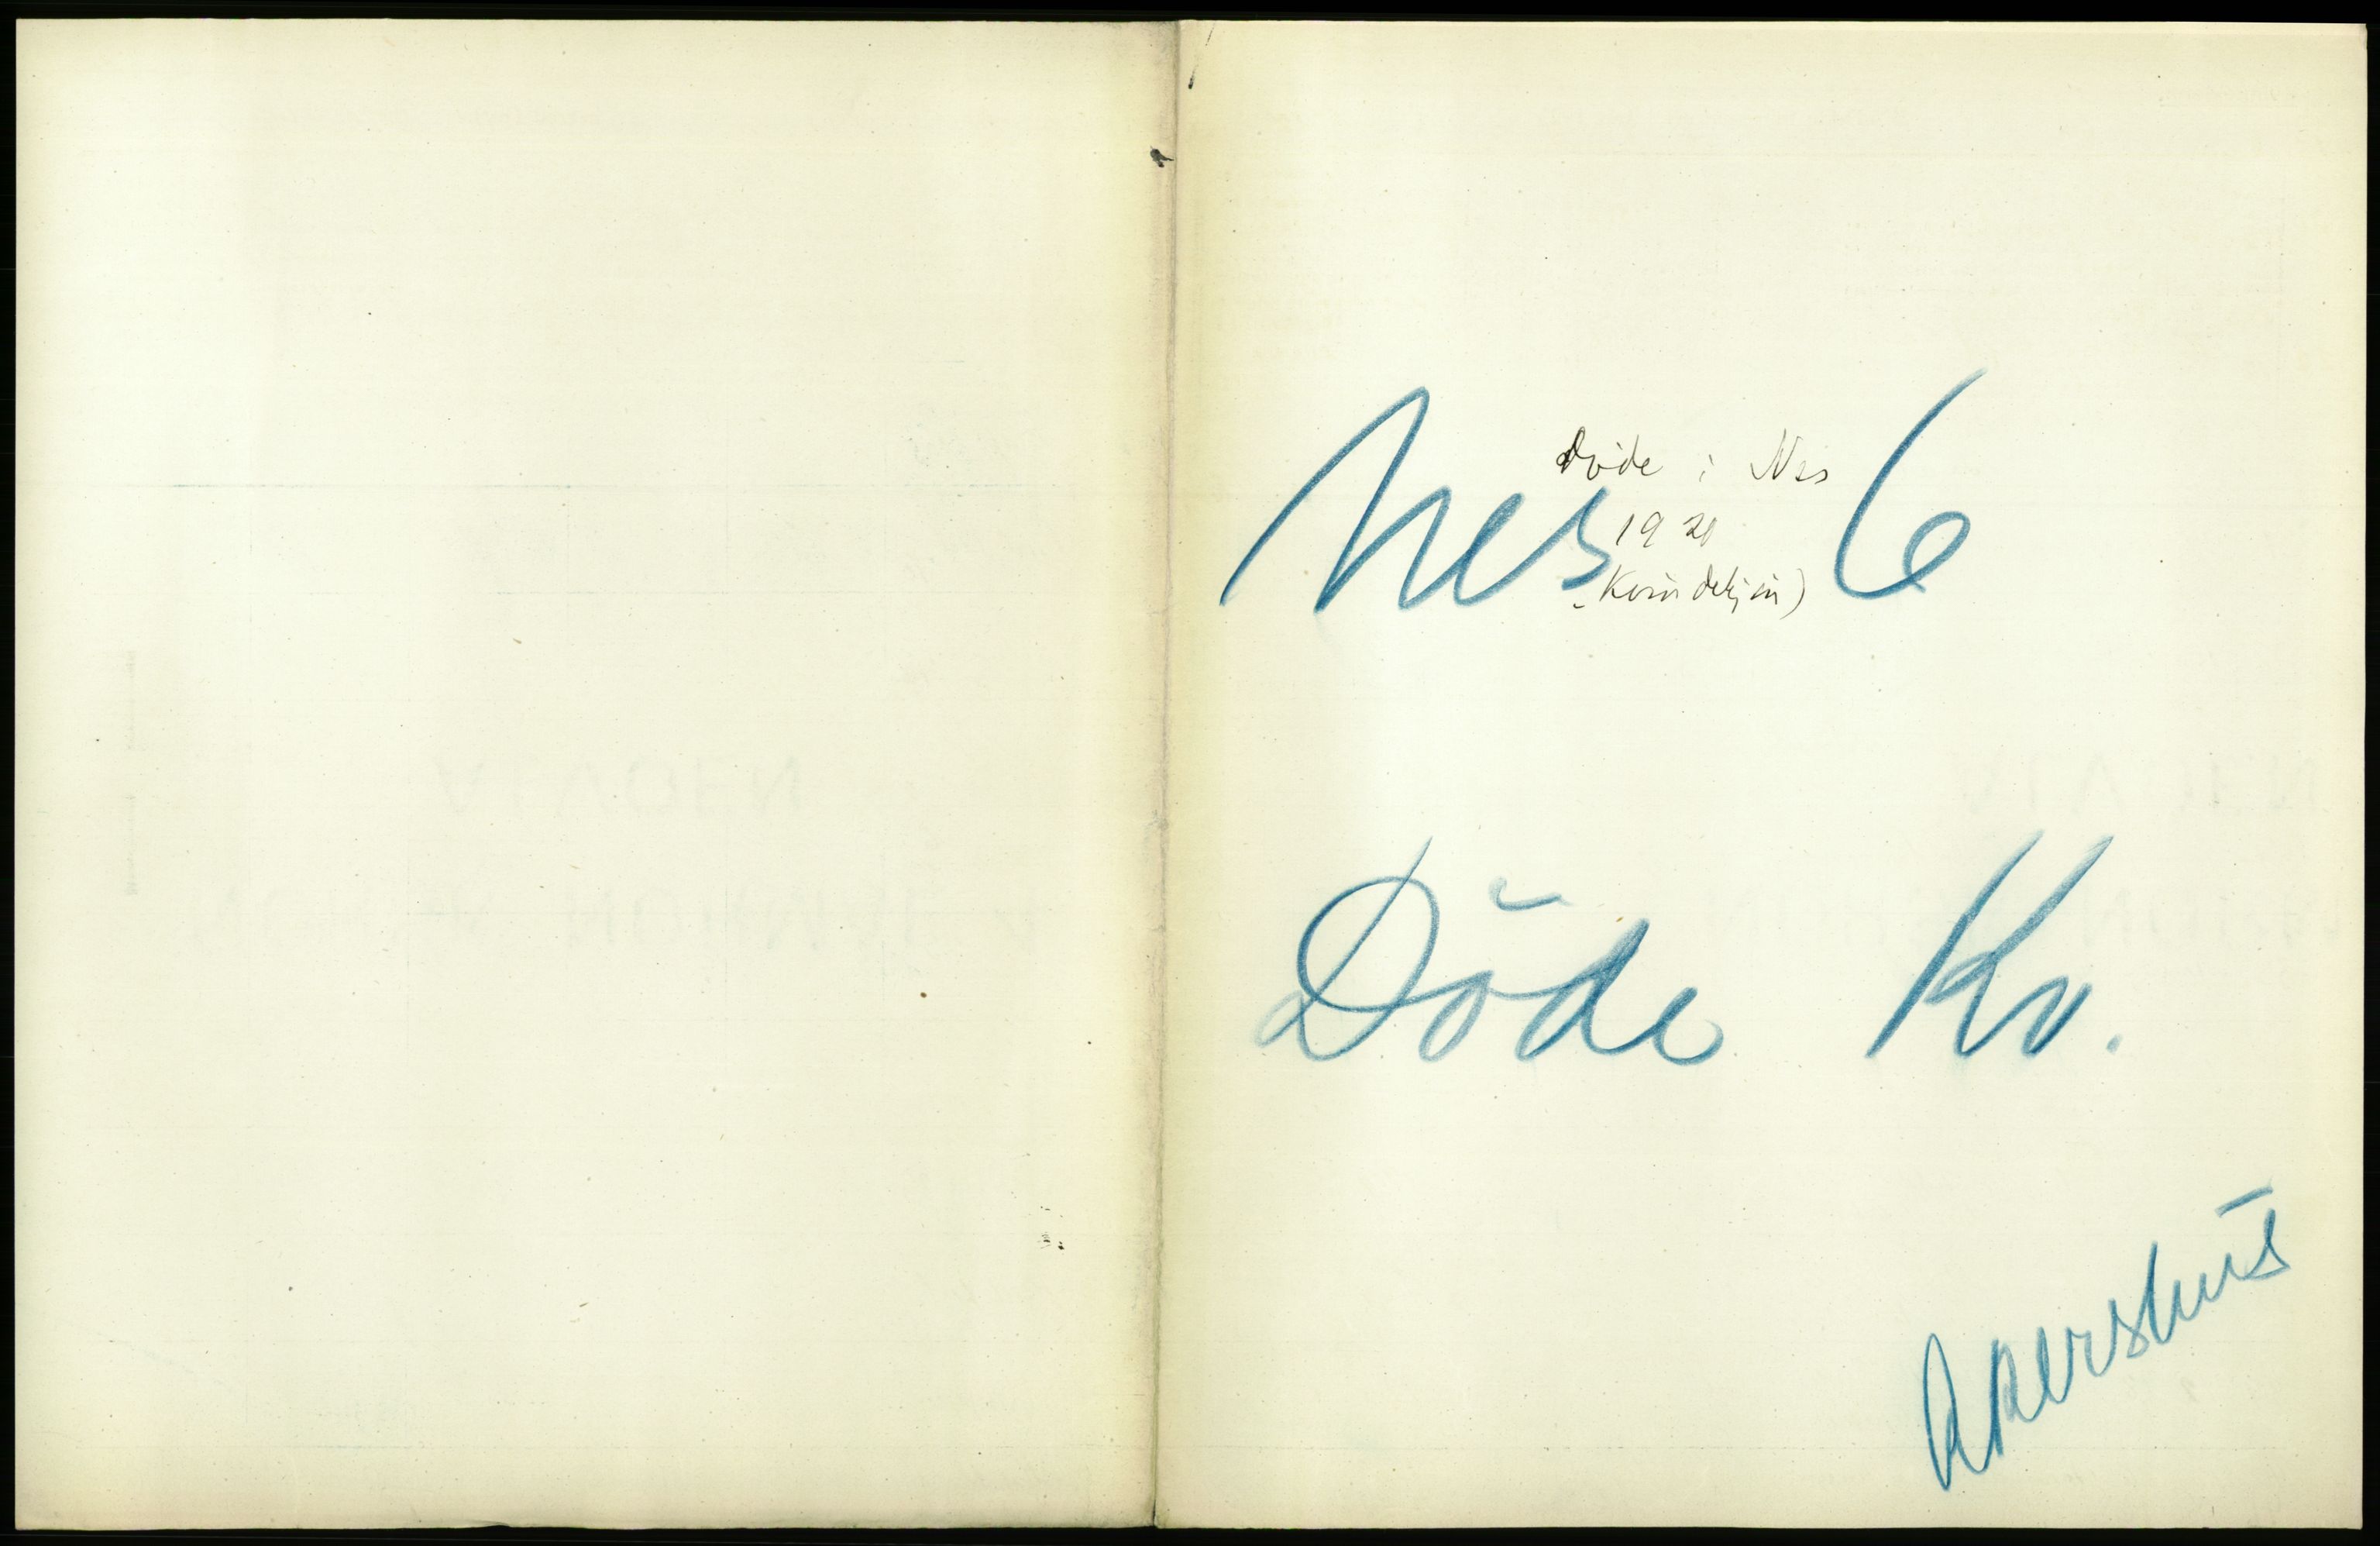 Nes 6
Døde i Nes
1920
Døde Kv.
Akershus